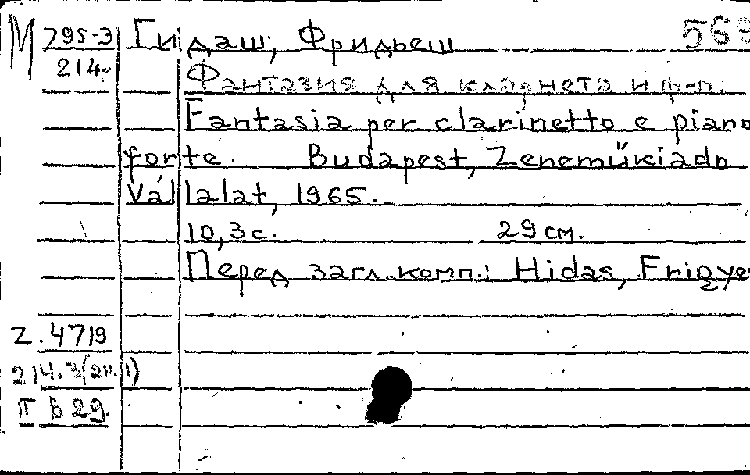 М 795-3 Гидаш, Фридьеш 569
214
Фантазия для кларнета и ф-п.
Fantasia per clarinetto e piano
forte. Budapest, Zeneműkiadó
Vállalat, 1965.
10,3 с. 29 см.
Перед загл. комп.: Hidas, Frigye
Z. 4719
214.3
П 29.